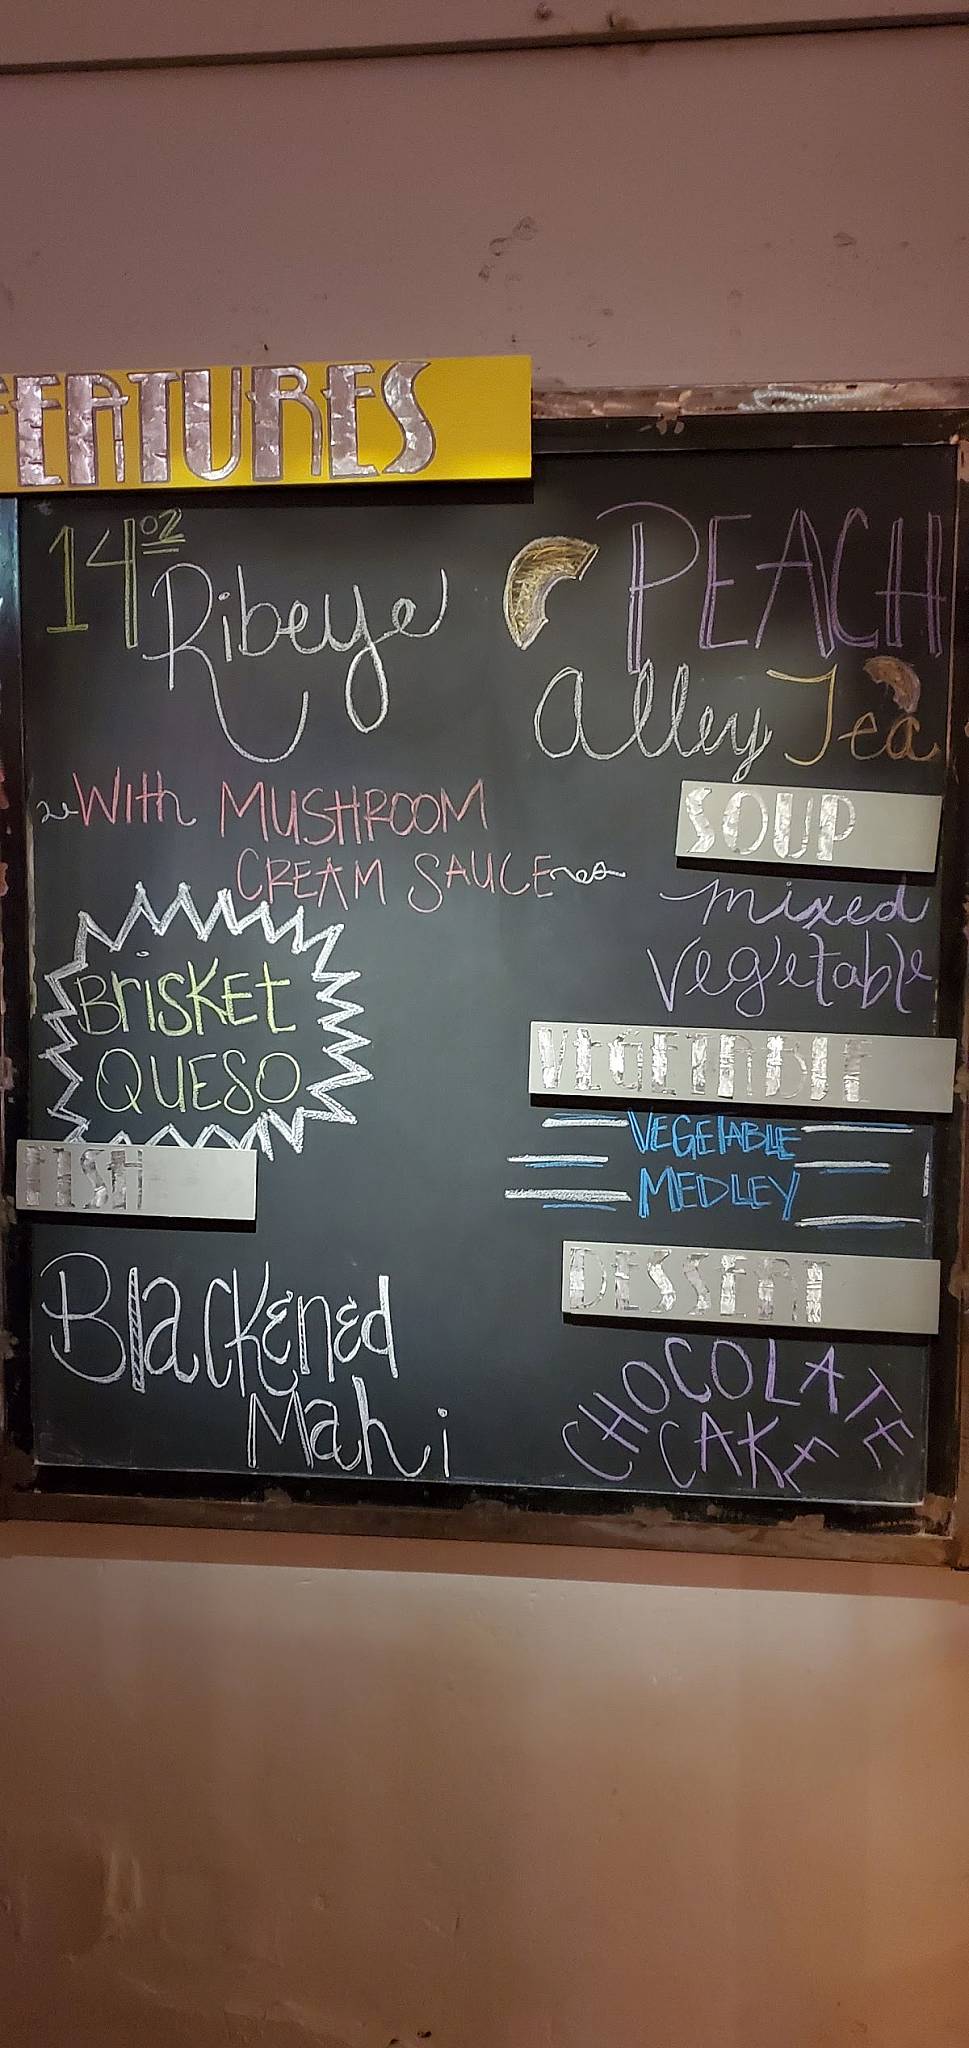 FEATURES
14 oz
Ribeye
With MUSHROOM
CREAM SAUCE
BrisKEt
QUESO
FISH
Blackened
Mahi
PEACH
Alley Tea
SOUP
mixed
vegetable
VEGETABLE
VEGETABLE
MEDLEY
DESSERT
CHOCOLATE
CAKE